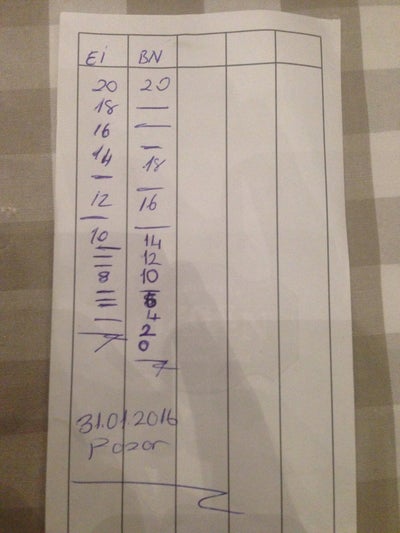 Ei BN
20 20
18 —
16 —
14 —
— 18
12 —
— 16
10 —
— 14
— 12
8 10
— —
— 6
— 4
— 2
0
—
31.01.2016
Pazar